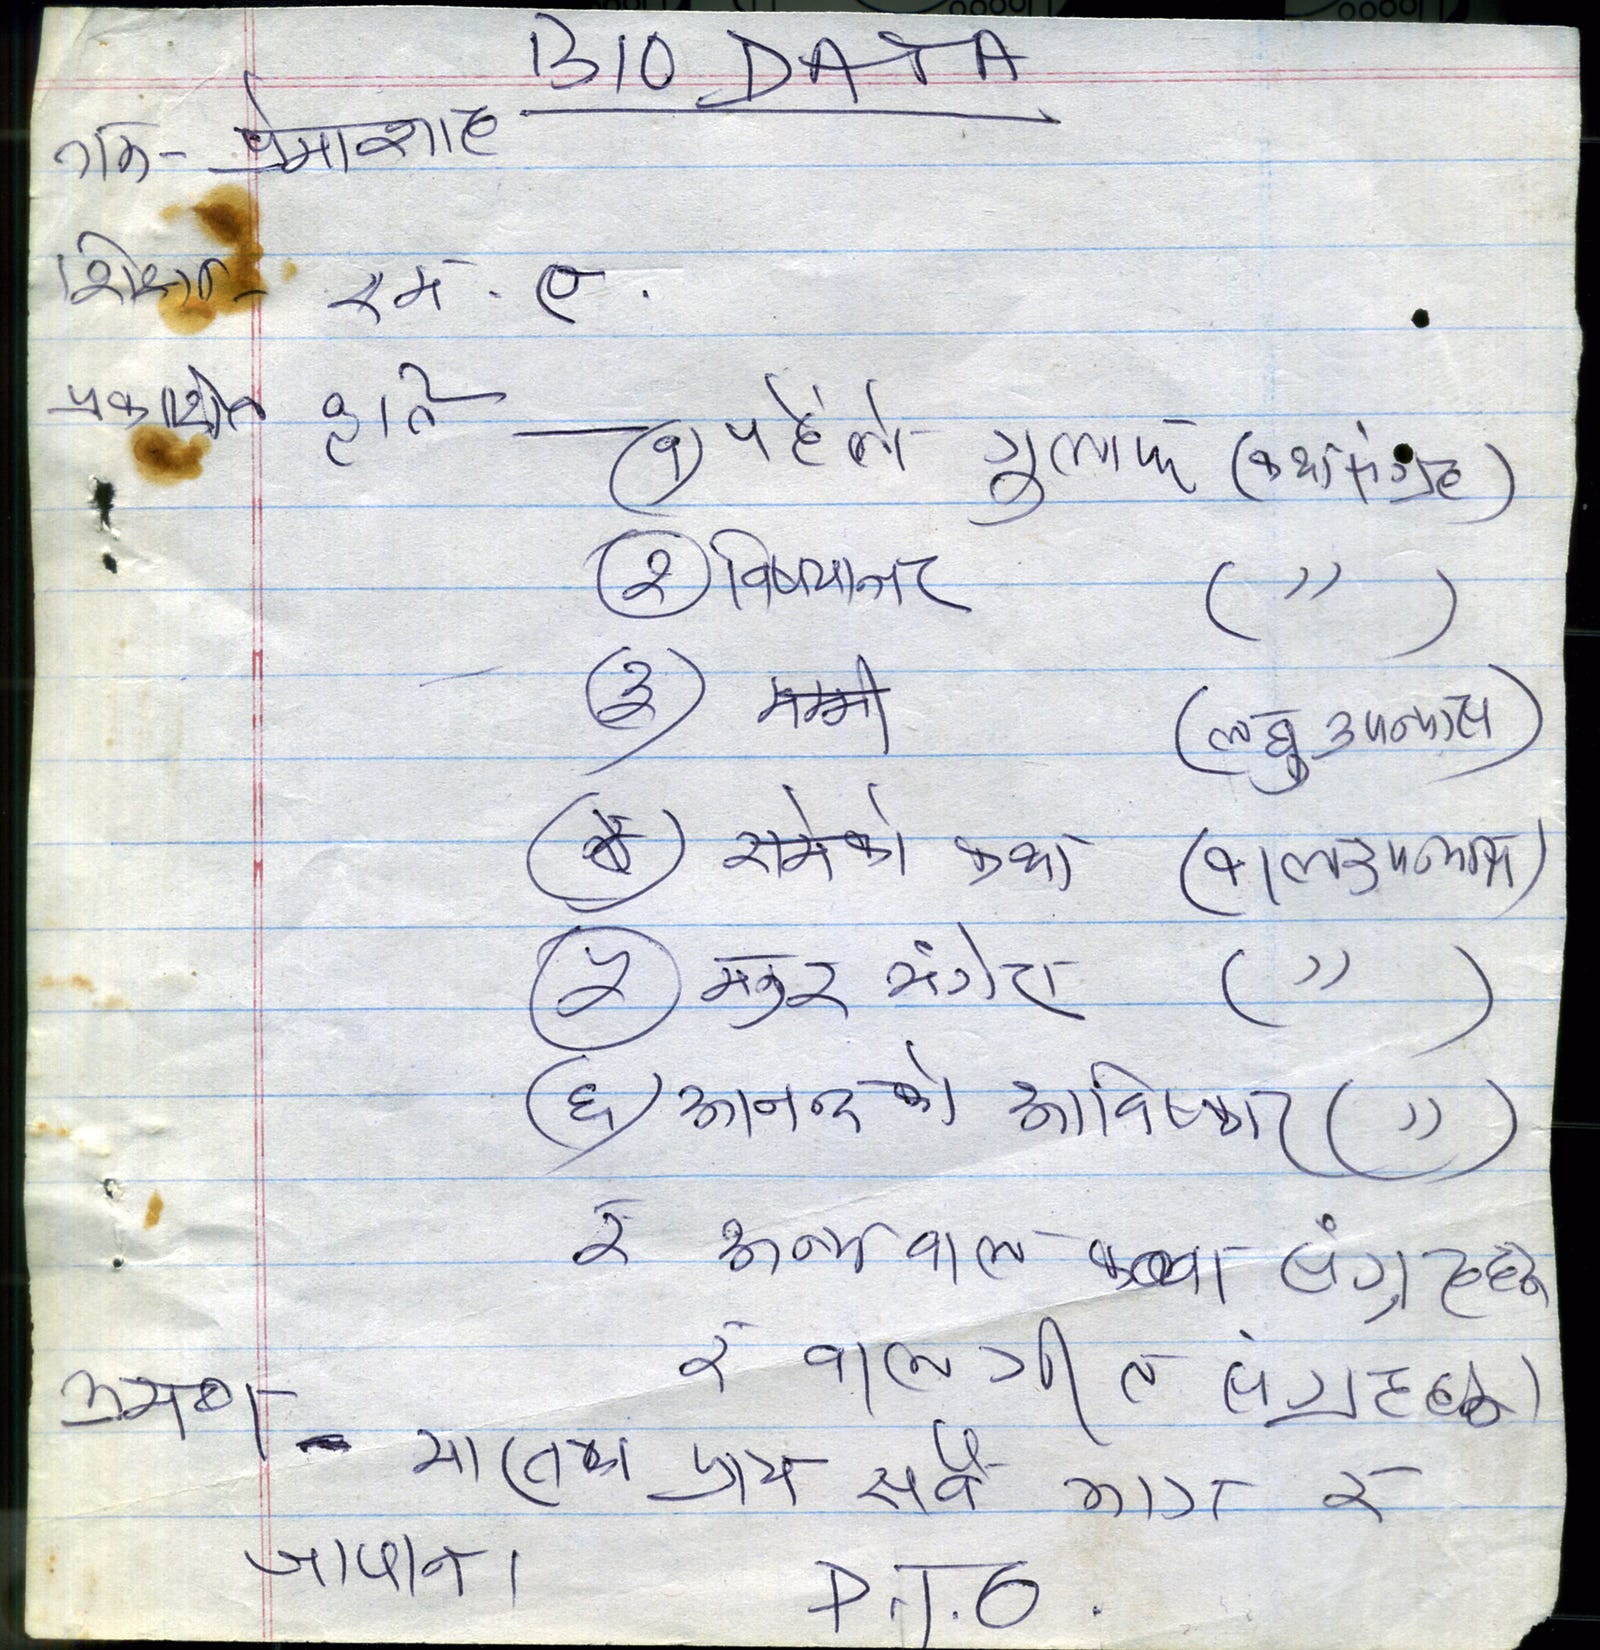 BIO DATA
नाम - प्रेमा शाह
शिक्षा - एम. ए.
प्रकाशीत कृति — (१) पहेंलो गुलाफ (कथा संग्रह)
(२) विषयान्तर ( " )
(३) मम्मी (लघु उपन्यास)
(४) रामेको कथा (बालउपन्यास)
(५) मकुर भंगेरा ( " )
(६) आनन्दको आविष्कार ( " )
र अन्य बाल कथा संग्रहहरू
र बाल गीत संग्रहहरू।
भ्रमण - भारतका प्राय सबै भाग र
जापान।
P.T.O.